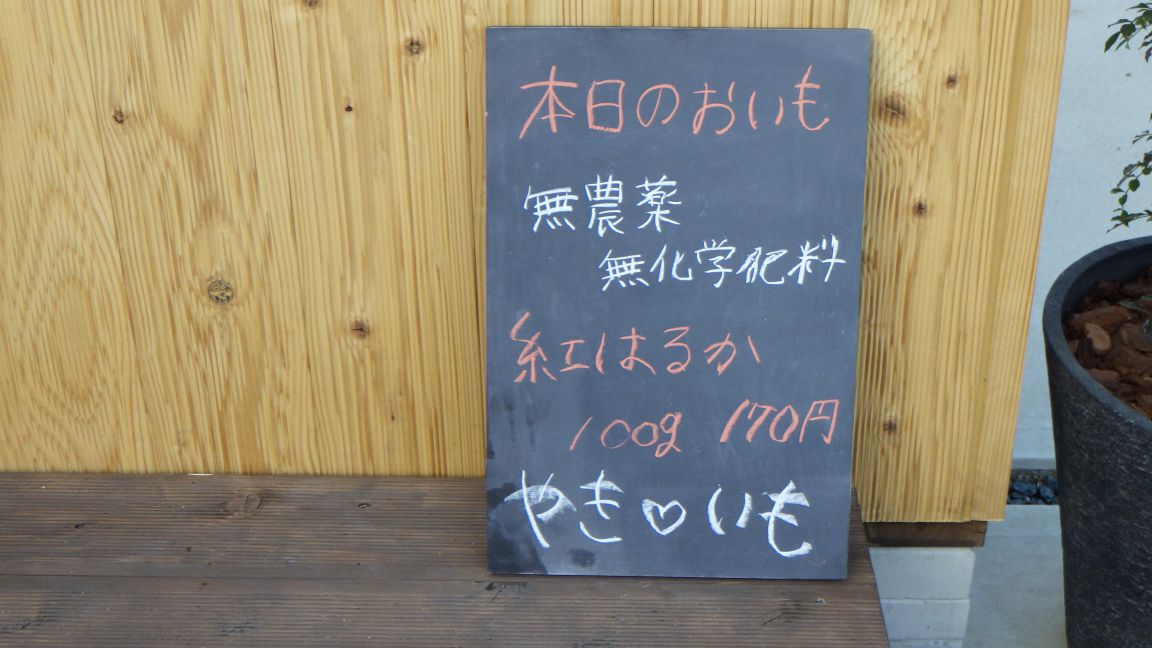 本日のおいも
無農薬
無化学肥料
紅はるか
100g 170円
やき♡いも